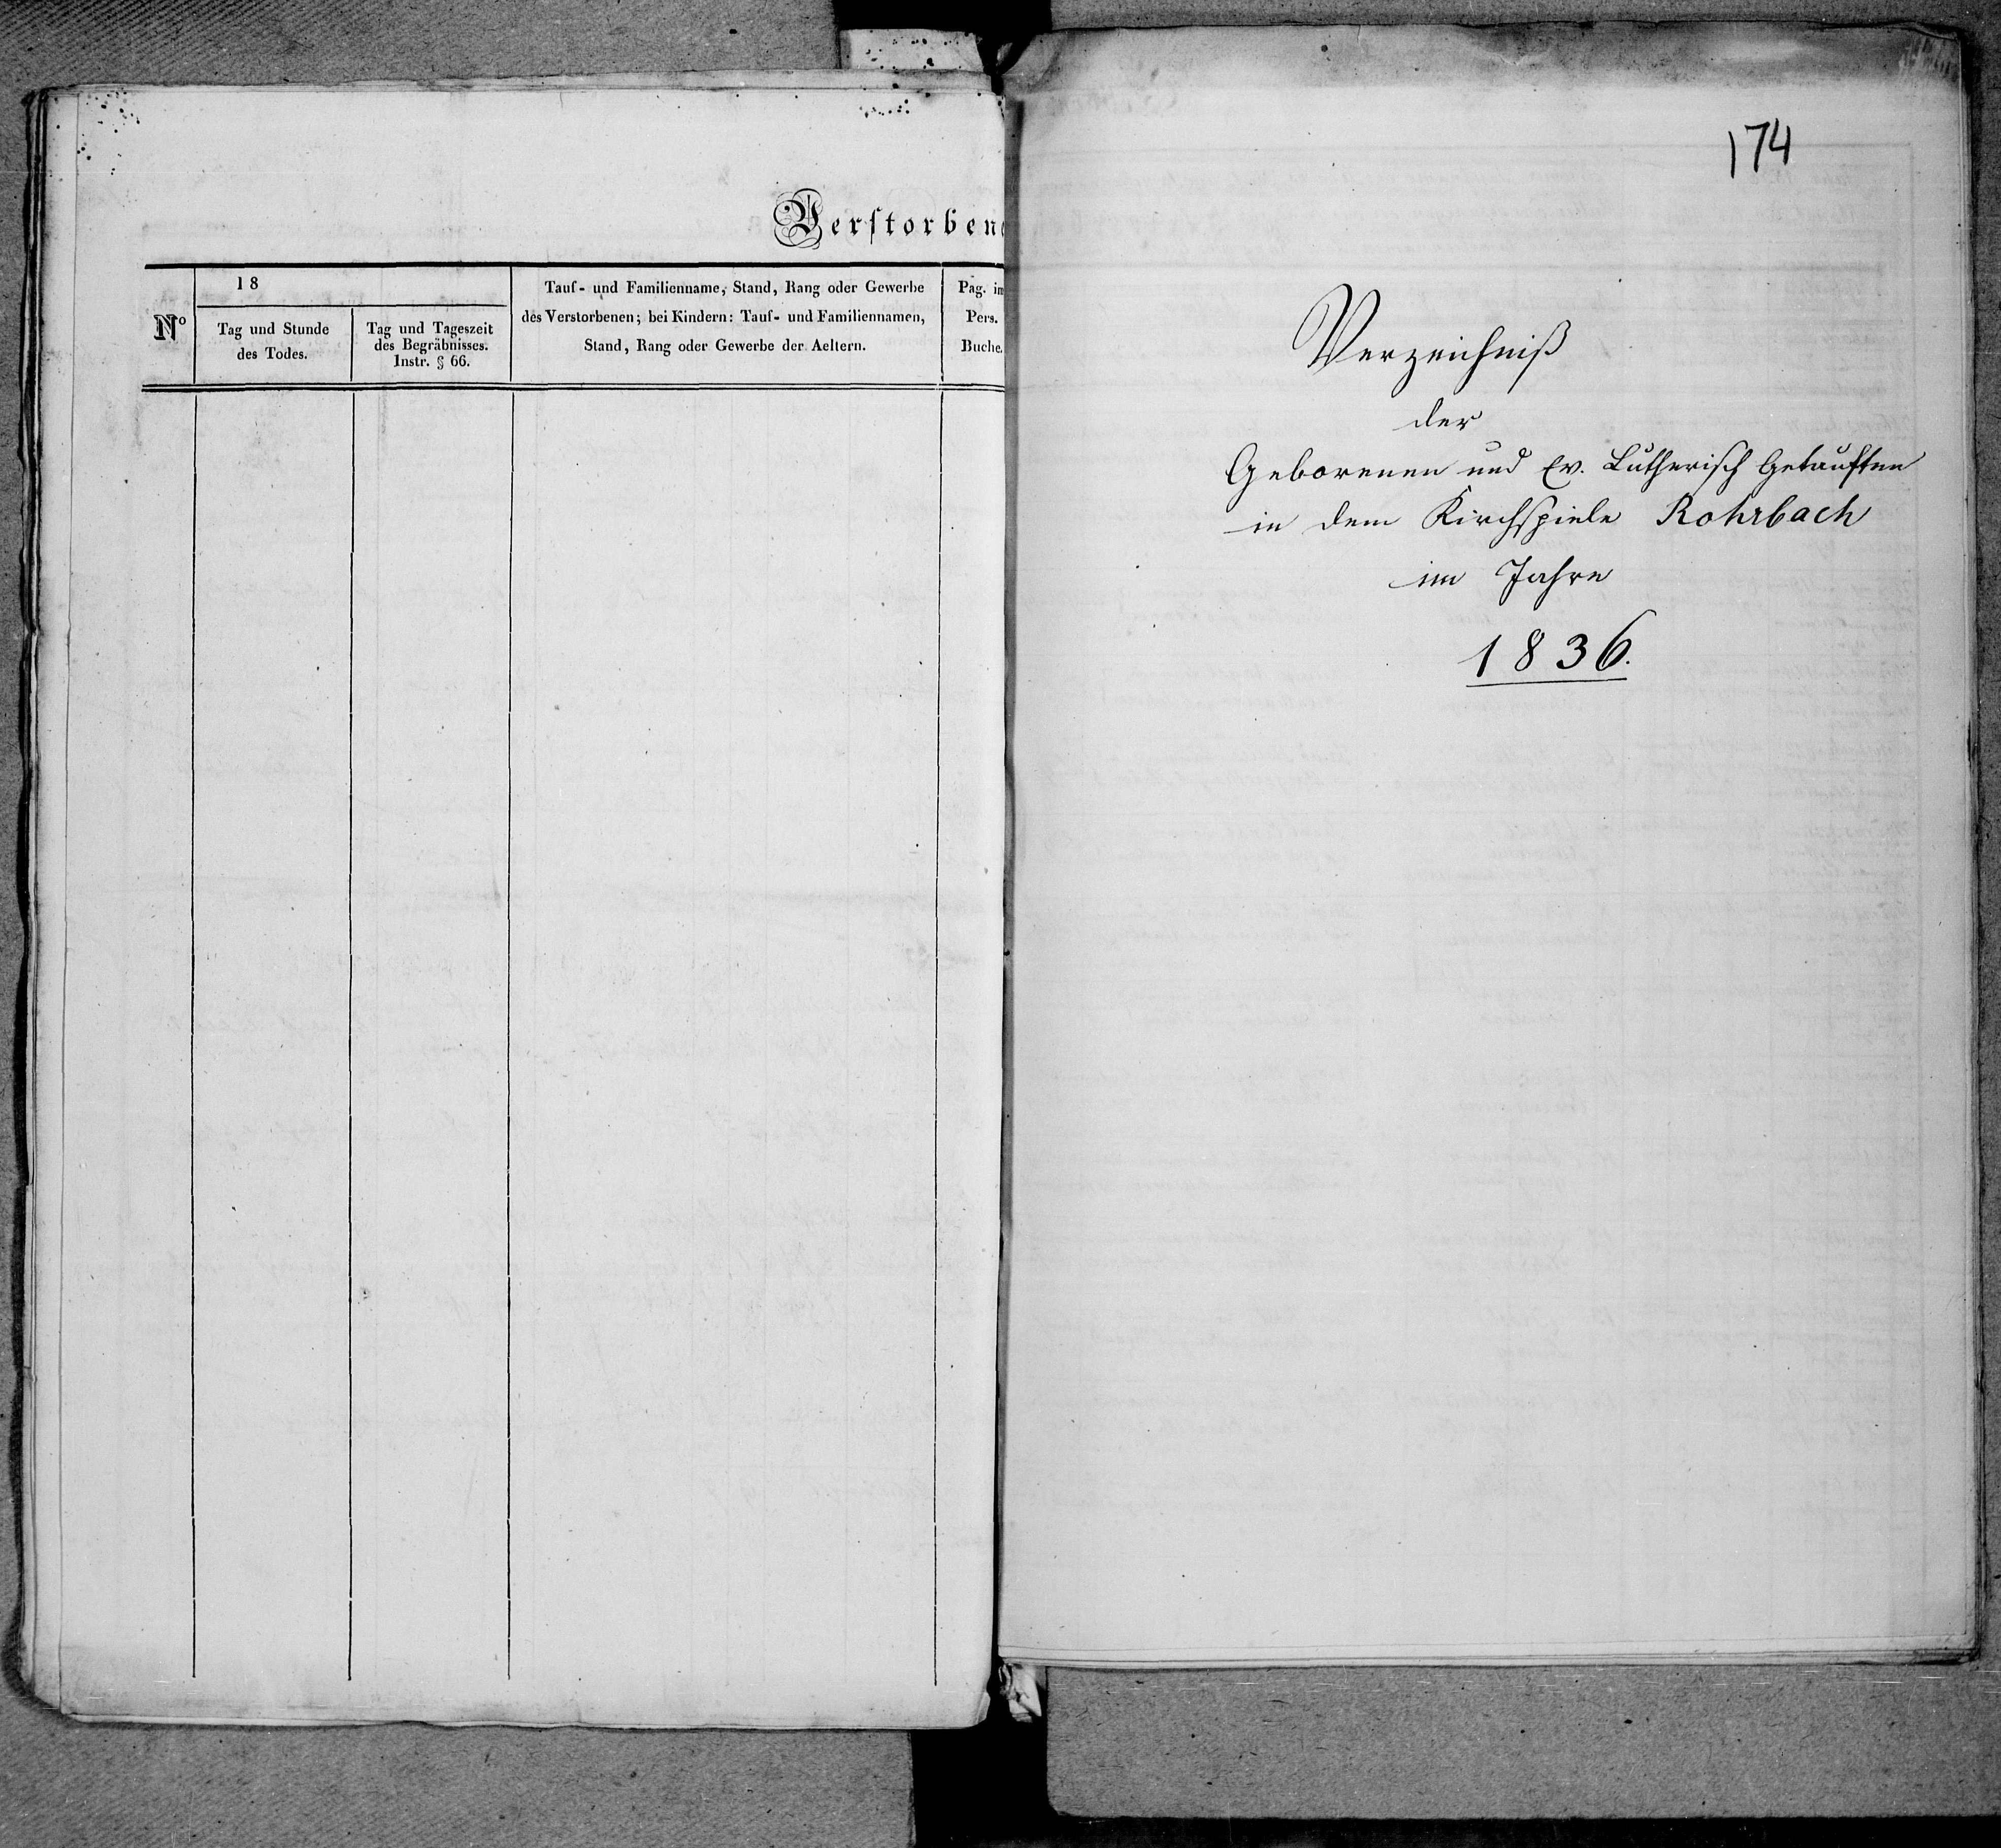 Verstorbene
No
18
Tag und Stunde
des Todes.
Tag und Tageszeit
des Begräbnisses.
Instr. § 66.
Tauf- und Familienname, Stand, Rang oder Gewerbe
des Verstorbenen; bei Kindern: Tauf- und Familiennamen,
Stand, Rang oder Gewerbe der Aeltern.
Pag. im
Pers.
Buche.
174
Verzeichniß
der
Geborenen und Ev. Lutherisch Getauften
in dem Kirchspiele Rohrbach
im Jahre
1836.